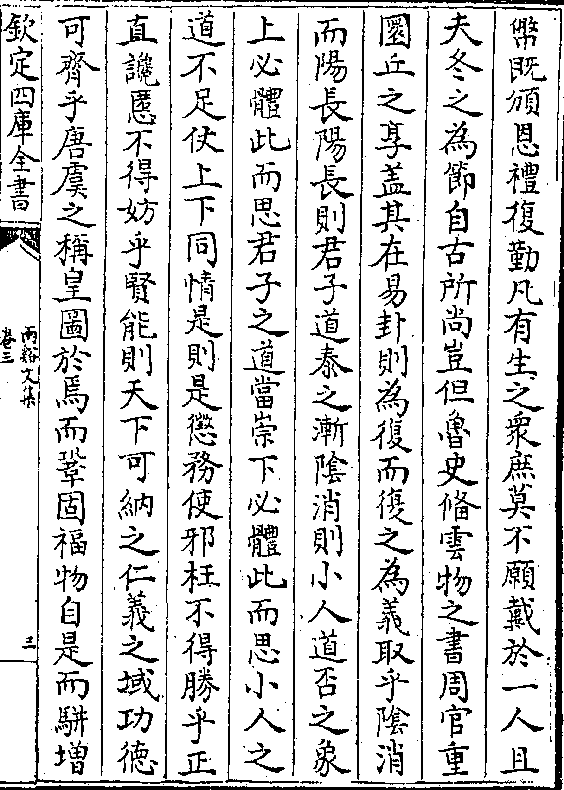 幣既頒恩禮復勤凡有生之衆庶莫不願戴於一人且
夫冬之為節自古所尚豈但魯史脩雲物之書周官重
圜丘之享盖其在易卦則為復而復之為義取乎陰消
而陽長陽長則君子道泰之漸陰消則小人道否之象
上必體此而思君子之道當崇下必體此而思小人之
道不足仗上下同情是則是懲務使邪枉不得勝乎正
直讒慝不得妨乎賢能則天下可納之仁義之域功德
可齊乎唐虞之稱皇圖於焉而鞏固福物自是而駢增
欽定四庫全書
兩谿文集
卷三
三